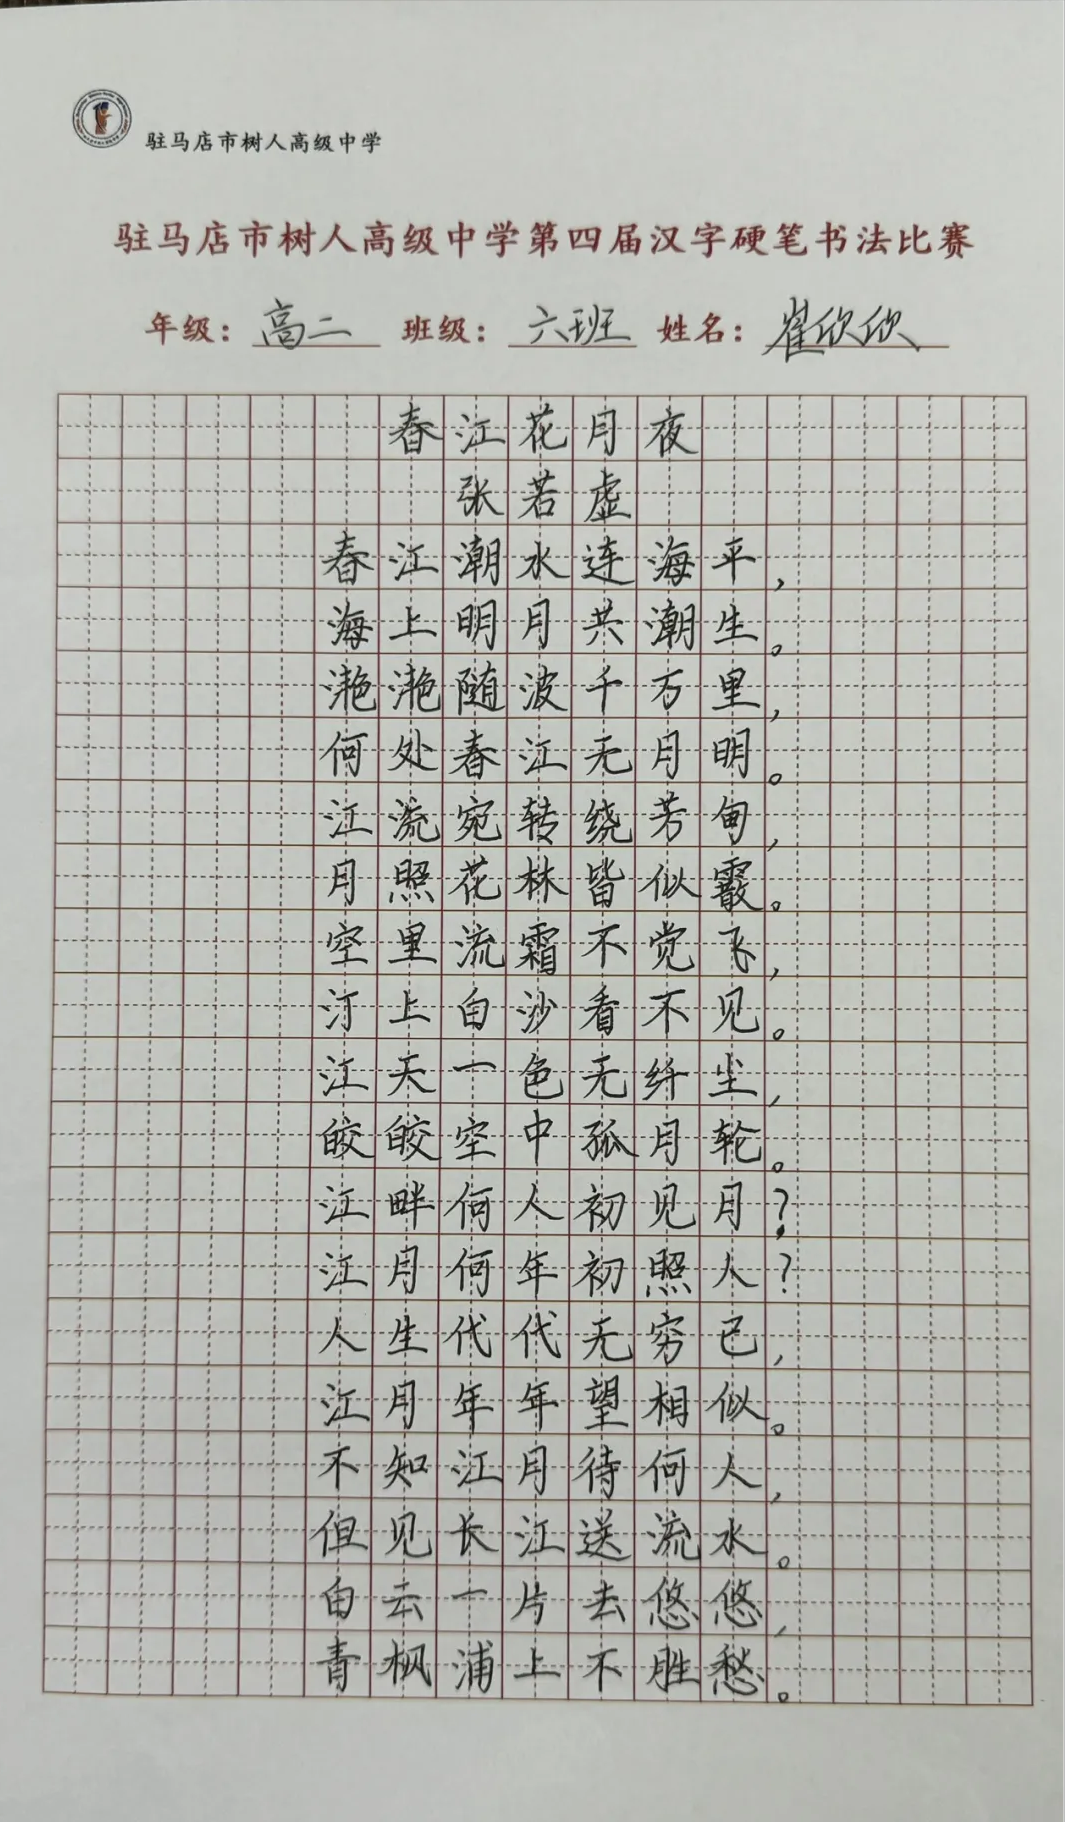 驻马店市树人高级中学
驻马店市树人高级中学第四届汉字硬笔书法比赛
年级：高二 班级：六班 姓名：崔欣欣
春江花月夜
张若虚
春江潮水连海平，
海上明月共潮生。
滟滟随波千万里，
何处春江无月明。
江流宛转绕芳甸，
月照花林皆似霰。
空里流霜不觉飞，
汀上白沙看不见。
江天一色无纤尘，
皎皎空中孤月轮。
江畔何人初见月？
江月何年初照人？
人生代代无穷已，
江月年年望相似。
不知江月待何人，
但见长江送流水。
白云一片去悠悠，
青枫浦上不胜愁。